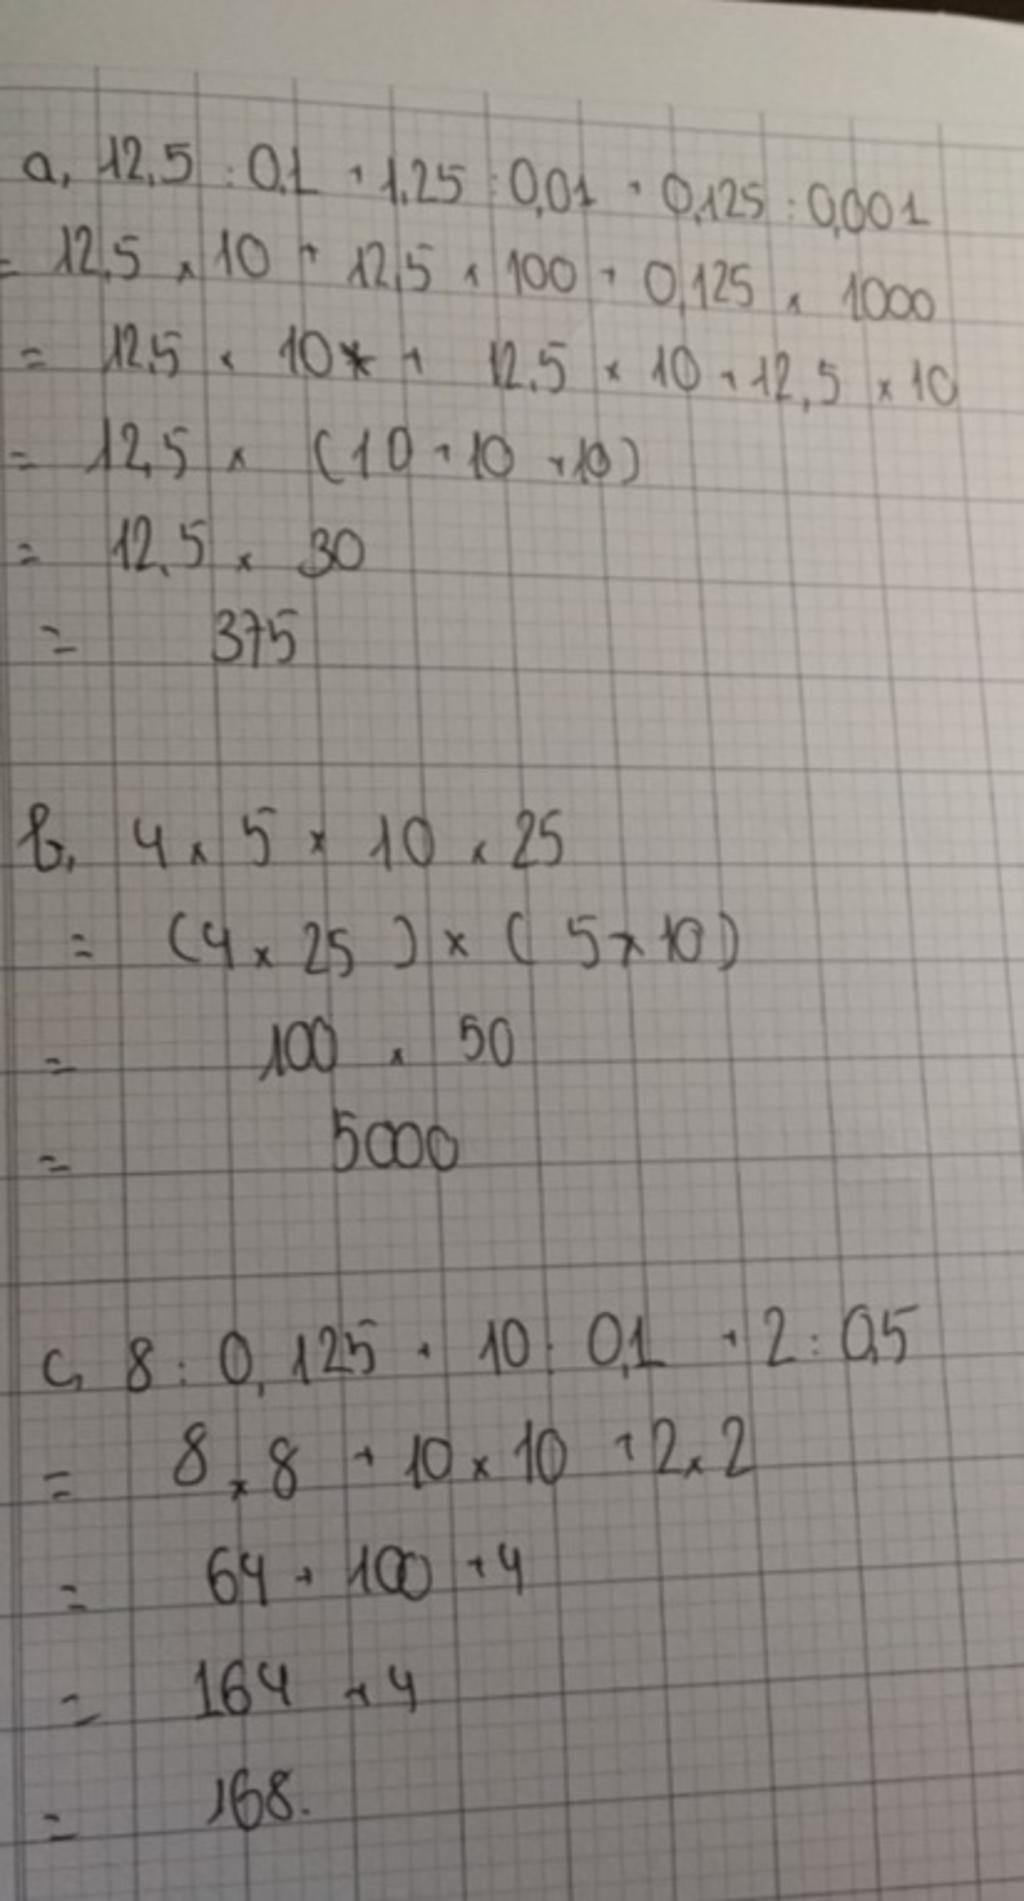 a, 12,5 : 0,1 + 1,25 : 0,01 + 0,125 : 0,001
= 12,5 × 10 + 12,5 × 100 + 0,125 × 1000
= 12,5 × 10 + 12,5 × 10 + 12,5 × 10
= 12,5 × (10 + 10 + 10)
= 12,5 × 30
= 375
b, 4 × 5 × 10 × 25
= (4 × 25) × (5 × 10)
= 100 × 50
= 5000
c, 8 : 0,125 + 10 : 0,1 + 2 : 0,5
= 8 × 8 + 10 × 10 + 2 × 2
= 64 + 100 + 4
= 164 + 4
= 168.